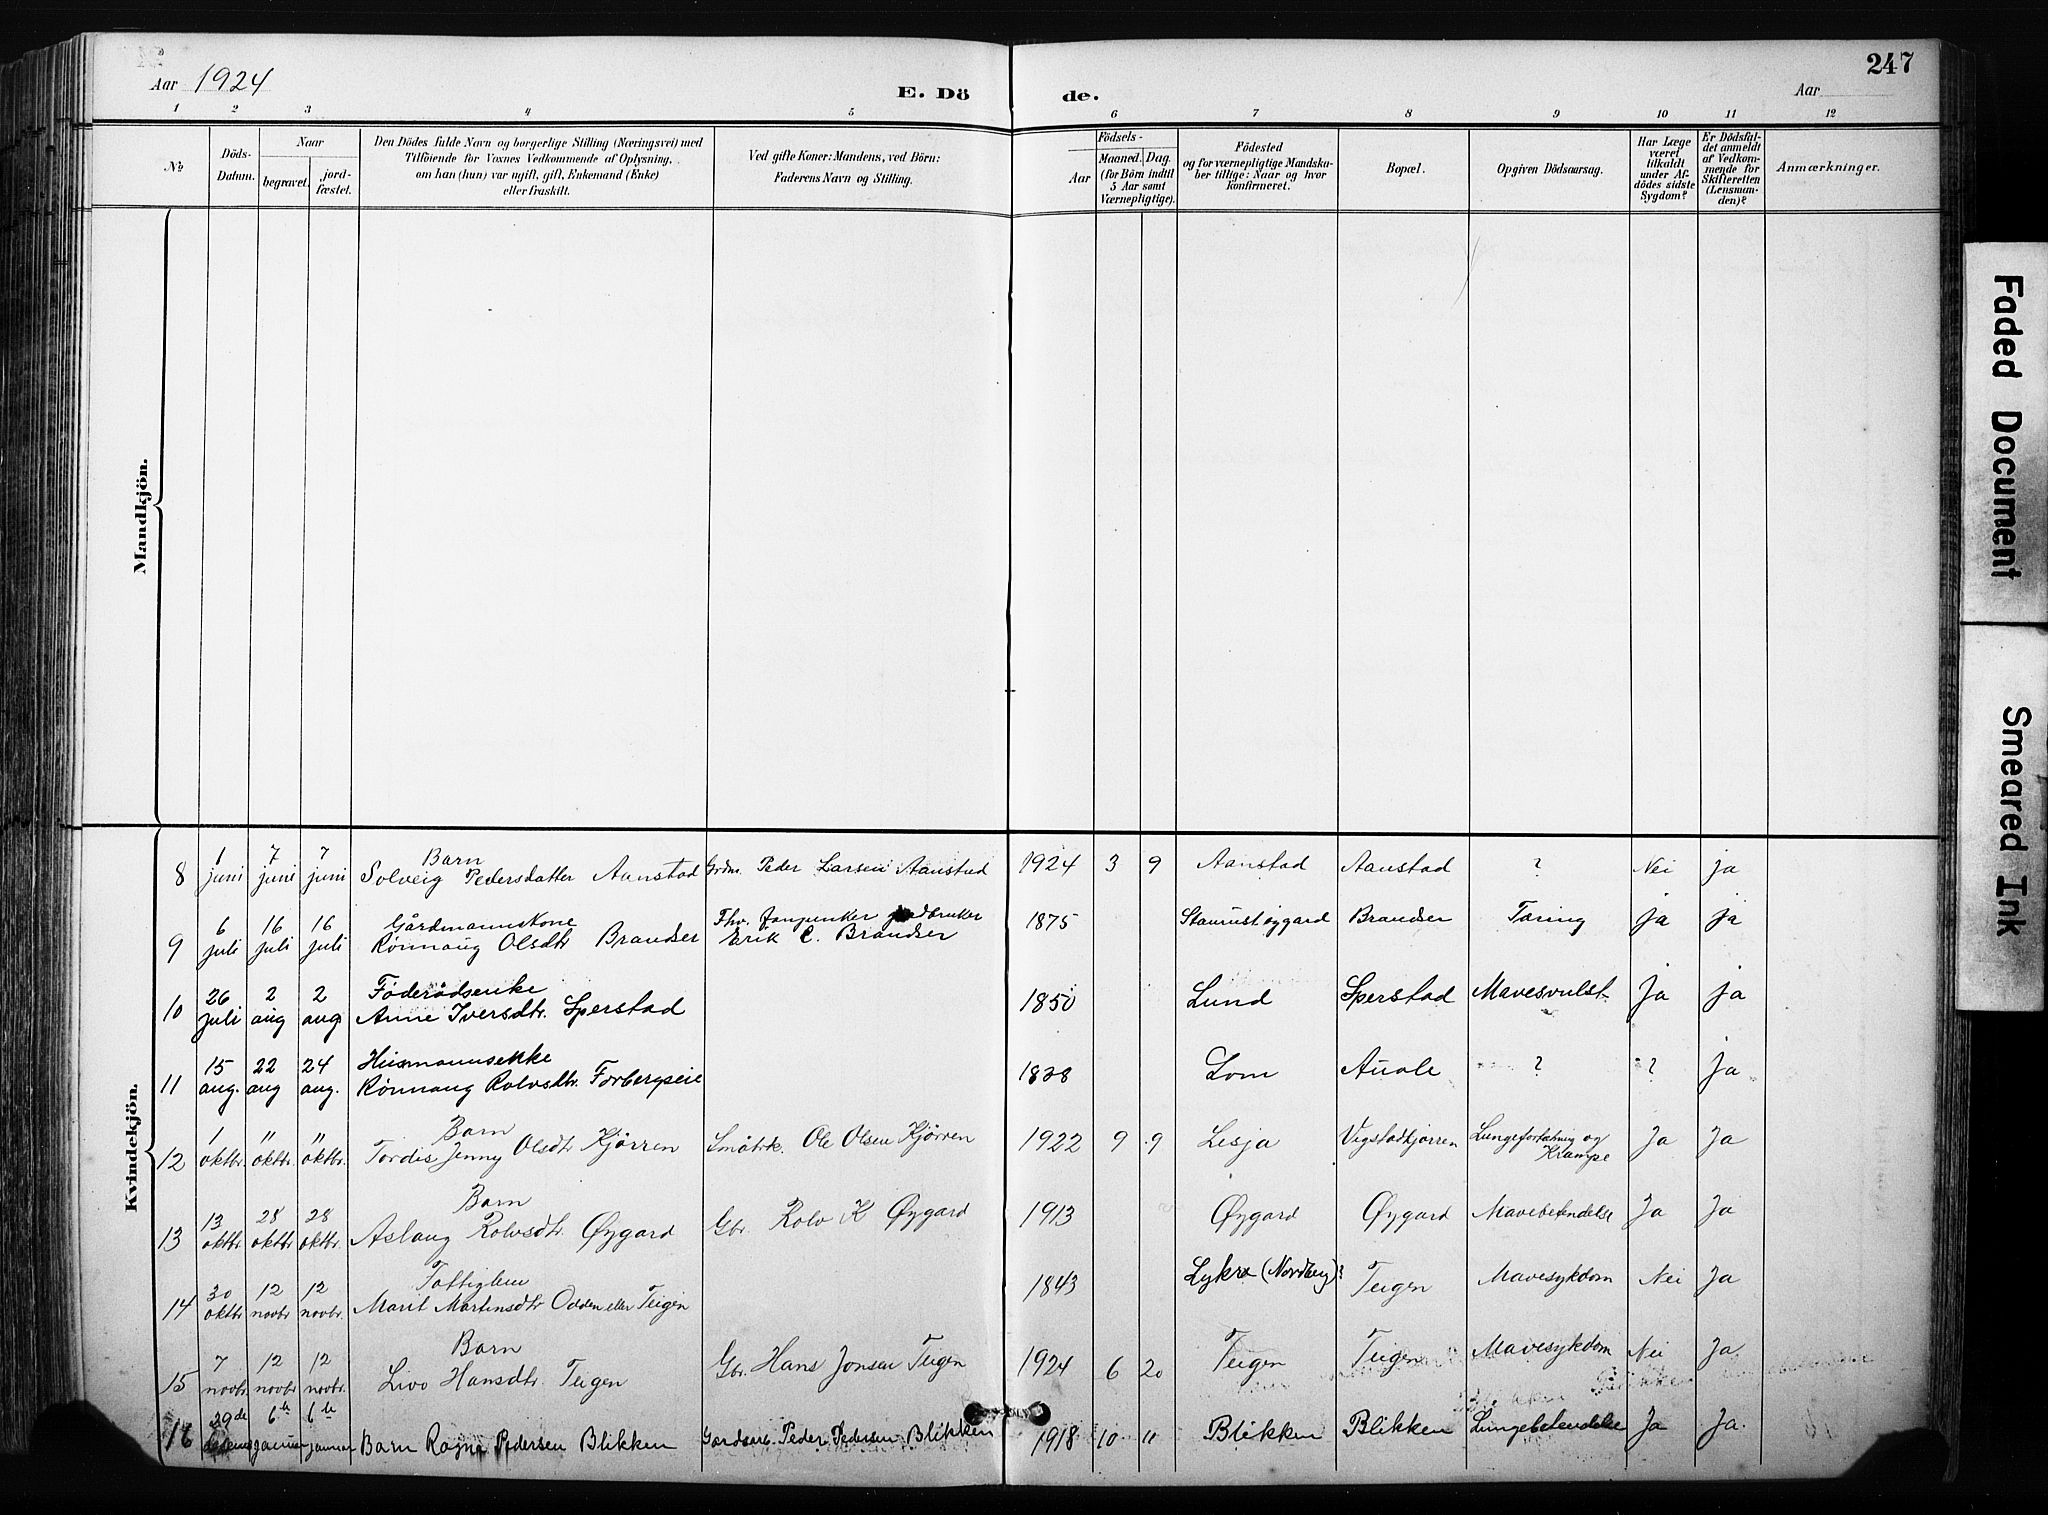 247
Aar 1924
E. Dö de.
Aar
1 2 3 4 5 6 7 8 9 10 11 12
No
Döds-Datum.
Naar
begravet.
jord-fæstet.
Den Dödes fulde Navn og borgerlige Stilling (Næringsvei) med
Tilföiende for Voxnes Vedkommende af Oplysning,
om han (hun) var ugift, gift, Enkemand (Enke)
eller fraskilt.
Ved gifte Koner: Mandens, ved Börn:
Faderens Navn og Stilling.
Födsels-
Aar
Maaned. Dag.
(for Börn indtil
5 Aar samt
Værnepligtige).
Födested
og for værnepligtige Mandska-
ber tillige: Naar og hvor
konfirmeret.
Bopæl.
Opgiven Dödsaarsag.
Har Læge
været
tilkaldt
under Af-
dödes sidste
Sygdom?
Er Dödsfal-
det anmeldt
af Vedkom-
mende for
Skifteretten
(Lensman-
den)?
Anmærkninger.
Mandkjön.
Kvindekjön.
8 1 juni 7 juni 7 juni Barn Solveig Pedersdatter Aanstad Grdm. Peder Larsen Aanstad 1924 3 9 Aanstad Aanstad ? Nei ja
9 6 juli 16 juli 16 juli Gårdmannskone Rønnaug Olsdtr Brandser Fhv. Erik C. Brandser 1875 Brandser Tæring ja ja
10 26 juli 2 aug 2 aug Föderådsenke Anne Iversdtr. Sperstad 1850 Lund Sperstad Mavesvulst ja ja
11 15 aug. 22 aug 24 aug. Rønnaug Rolvsdtr. Forbergseie Lom Auale ? ? ja
12 1 oktbr. " oktbr. " oktbr. Barn Tordis Jenny Olsdtr Kjörren Småbrk. Ole Olsen Kjörren 1922 9 9 Lesja Vigstadkjörren Lungefortætning og Krampe Ja Ja
13 13 oktbr. 28 oktbr 28 oktbr. Barn Aslaug Rolvsdtr. Øygard Gbr. Rolv K Øygard 1913 Øygard Øygard Mavebetendelse Ja Ja
14 30 oktbr 12 novbr 12 novbr. Fattiglem Marit Martinsdtr Odden eller Teigen 1843 Lykre (Nordberg)? Teigen Mavesykdom Nei Ja
15 7 novbr. 12 novbr 12 novbr. Barn Livo Hansdtr. Teigen Gbr. Hans Jonsen Teigen 1924 6 20 Teigen Teigen Mavesykdom Nei Ja
16 29de 6te januar 6te januar Barn Ragna Pedersen Blikken Gardarb. Peder Pedersen Blikken 1918 10 11 Blikken Blikken Lungebetendelse Ja Ja.
Faded Document
Smeared Ink